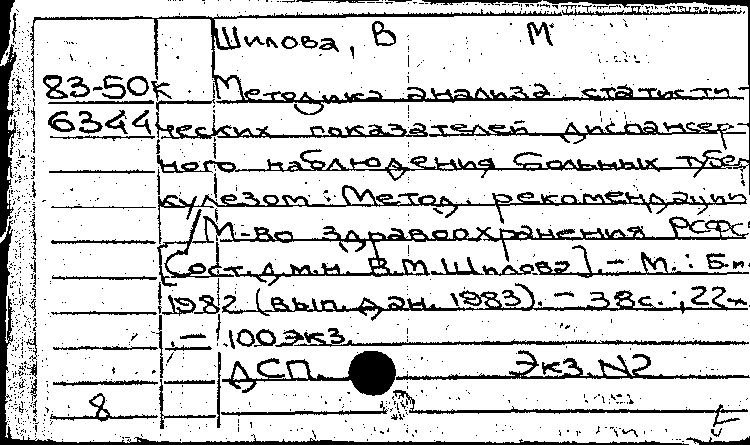 Шилова, В М
83-50к Методика анализа статисти-
6344 ческих показателей диспансер-
ного наблюдения больных тубер
кулезом: Метод. рекомендации
/ М-во здравоохранения РСФС
[Сост. д.м.н. В.М.Шилова]. - М.: Б.и.
1982 (вып. дан. 1983). - 38с.; 22
. - 100 экз.
ДСП. Экз. №2
8